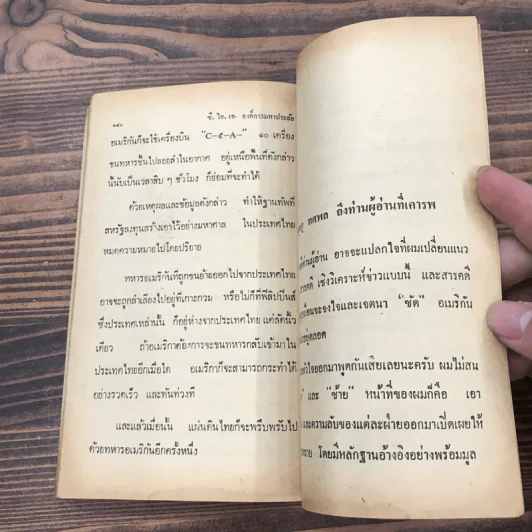 ซี. ไอ. เอ. องค์การมหาประลัย
๑๘๐
อเมริกันก็จะใช้เครื่องบิน "C-๕-A-" ๑๐ เครื่อง
ขนทหารขึ้นไปลอยลำในอากาศ อยู่เหนือพื้นที่ดังกล่าว
นี้นับเป็นเวลาสิบ ๆ ชั่วโมง ก็ย่อมที่จะทำได้
ด้วยเหตุผลและข้อมูลดังกล่าว ทำให้ฐานทัพที่
สหรัฐลงทุนสร้างเอาไว้อย่างมหาศาล ในประเทศไทย
หมดความหมายไปโดยปริยาย
ทหารอเมริกันที่ถูกขนย้ายออกไปจากประเทศไทย
อาจจะถูกลำเลียงไปอยู่ที่เกาะกวม หรือไม่ก็ที่ฟิลิปปินส์
ซึ่งประเทศเหล่านั้น ก็อยู่ห่างจากประเทศไทย แค่ลัดนิ้ว
เดียว ถ้าอเมริกาต้องการจะขนทหารกลับเข้ามาใน
ประเทศไทยอีกเมื่อใด อเมริกาก็จะสามารถกระทำได้
อย่างรวดเร็ว และทันท่วงที
และแล้วเมื่อนั้น แผ่นดินไทยก็จะพรึบพรับไป
ด้วยทหารอเมริกันอีกครั้งหนึ่ง
ทศพล ถึงท่านผู้อ่านที่เคารพ
ท่านผู้อ่าน อาจจะแปลกใจที่ผมเปลี่ยนแนว
เชิงวิเคราะห์ข่าวแบบนี้ และสารคดี
จะจงใจและเจตนา "ซัด" อเมริกัน
ออกมาพูดกันเสียเลยนะครับ ผมไม่สน
และ "ซ้าย" หน้าที่ของผมก็คือ เอา
และความลับของแต่ละฝ่ายออกมาเปิดเผยให้
โดยมีหลักฐานอ้างอิงอย่างพร้อมมูล